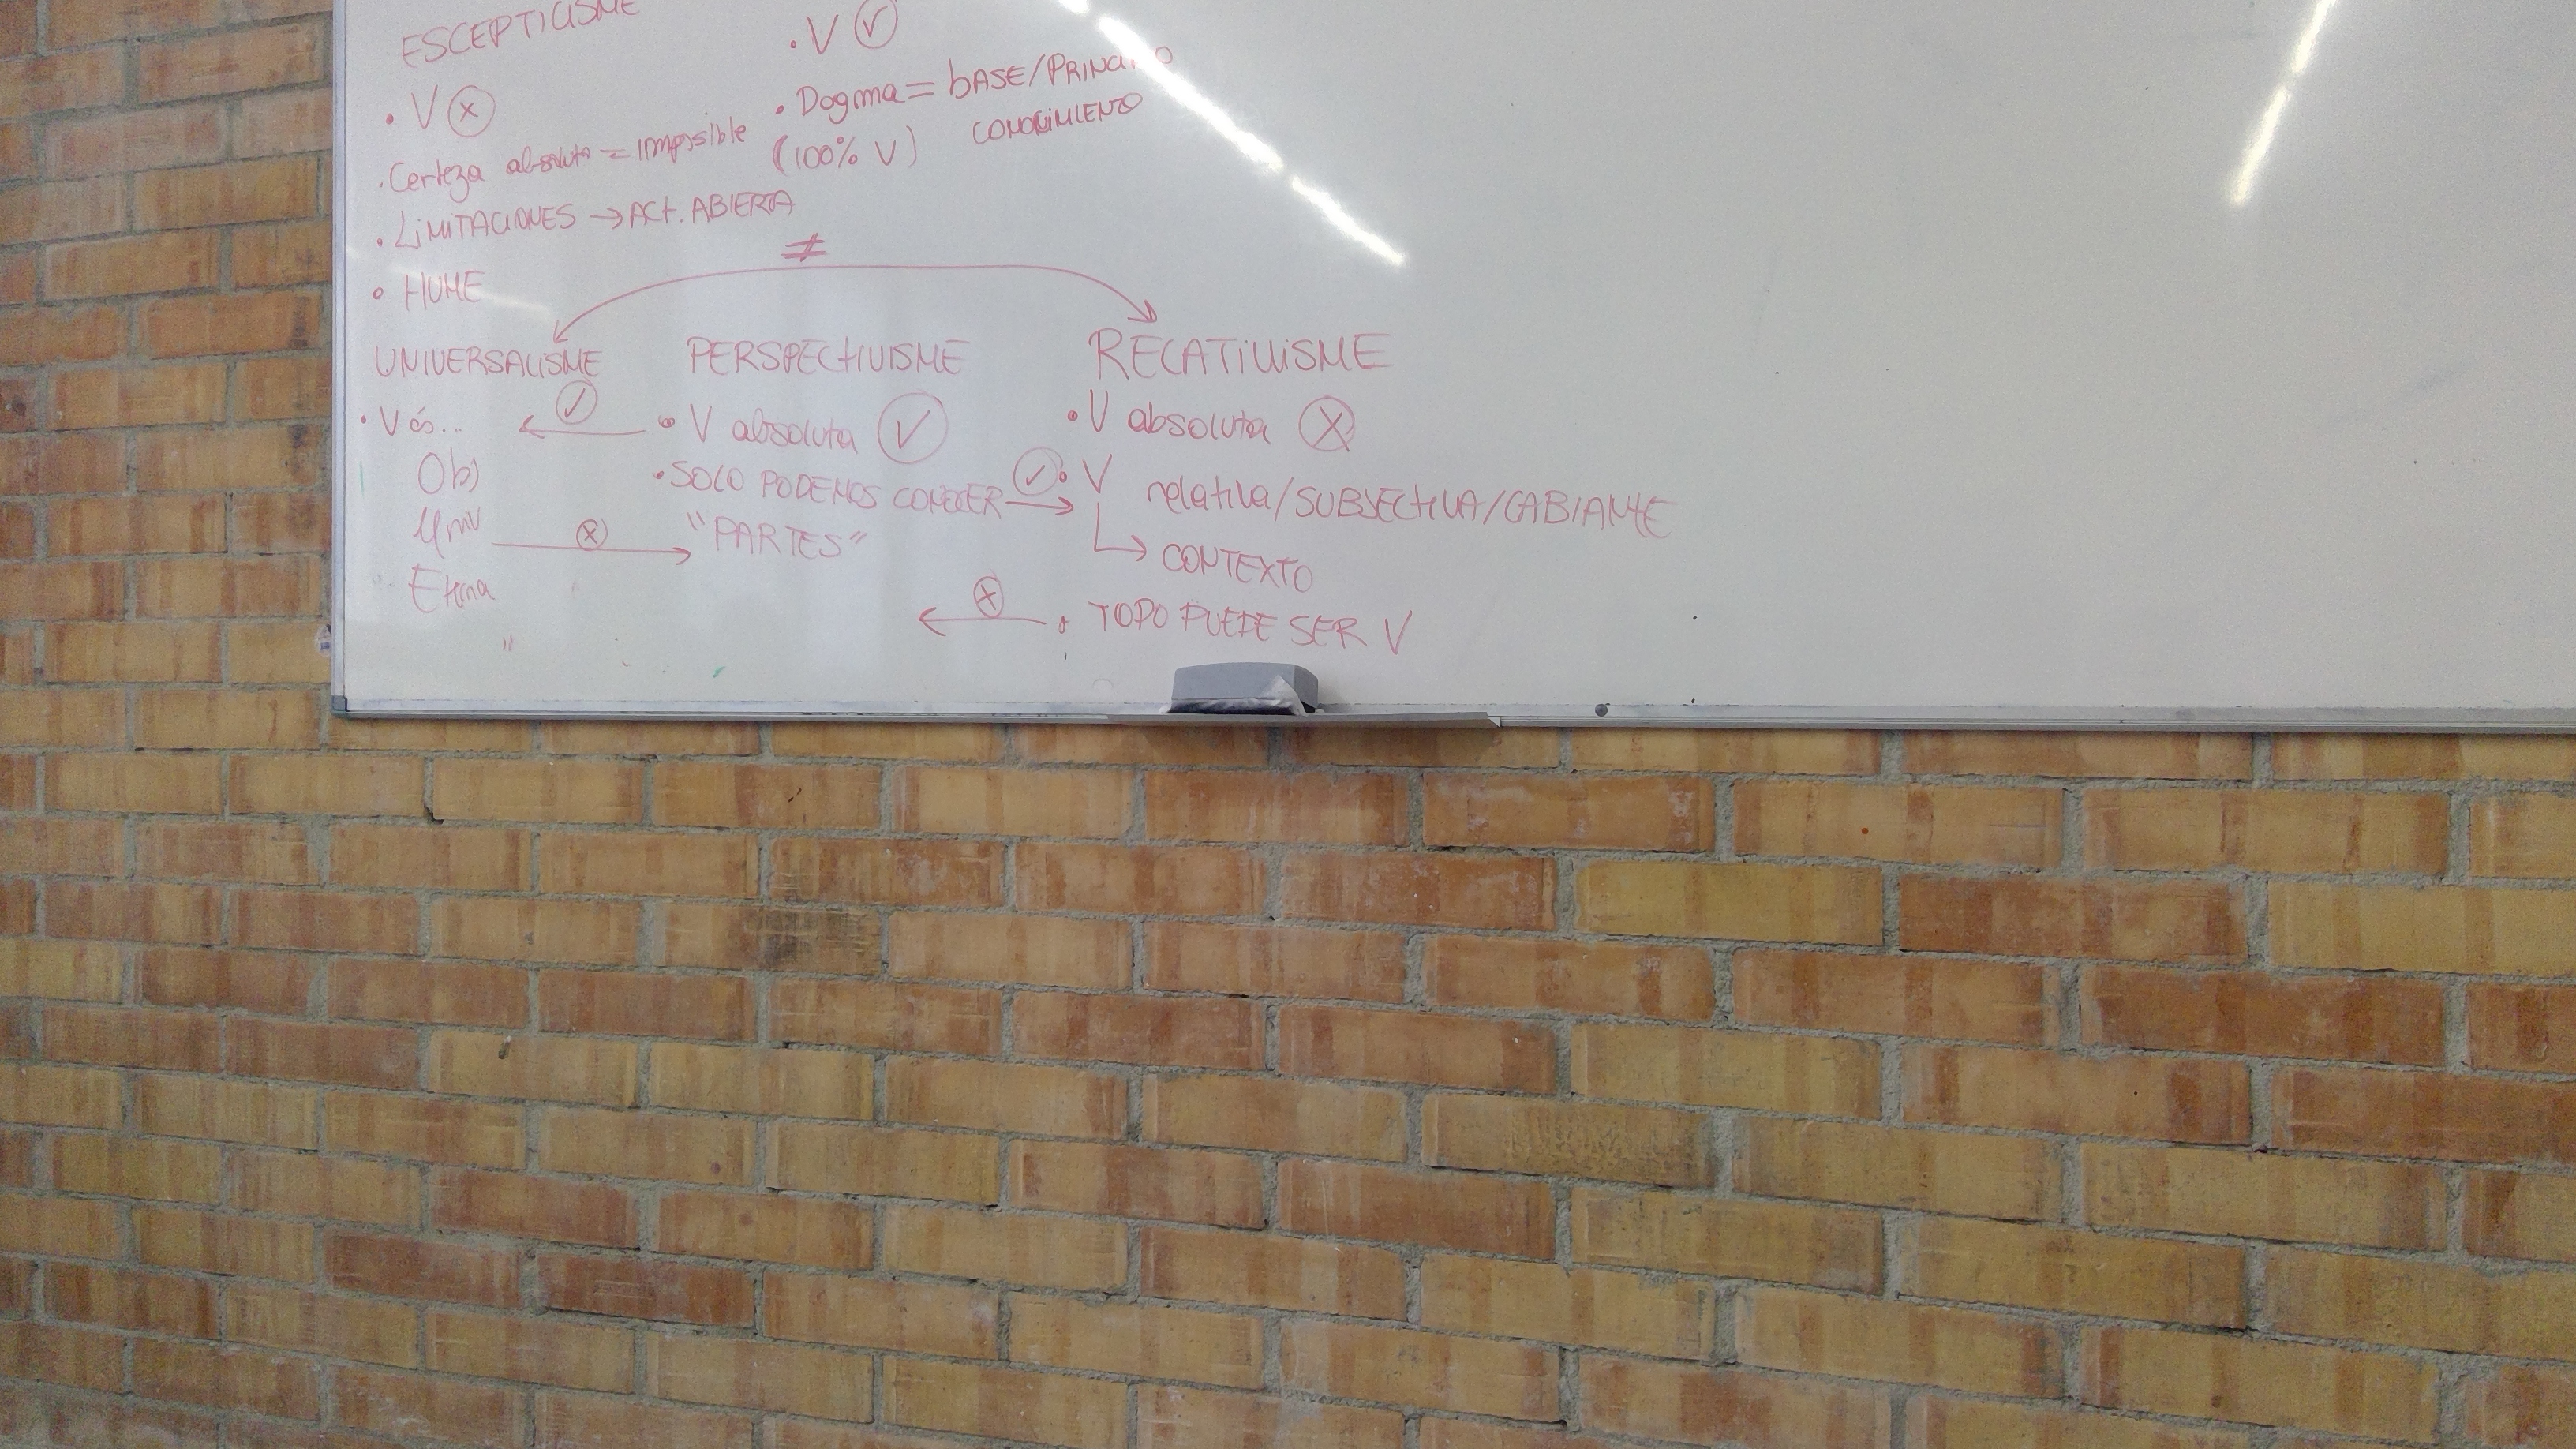 ESCEPTICISME
• V ⓧ
• Certeza absoluta = impossible
• LIMITACIONES → ACt. ABIERTA
• HUME
• V ✓
• Dogma = bASE/PRINCIPIO
(100% V) CONOCIMIENTO
≠
UNIVERSALISME
• V és...
Obj
Univ
Eterna
PERSPECtIVISME
✓
• V absoluta ✓
• SOLO PODEMOS CONOCER →
"PARTES"
ⓧ
RELATIVISME
• V absoluta ⓧ
✓
• V relativa/SUBJECtIVA/CABIANtE
↳ CONTEXTO
ⓧ
• TODO PUEDE SER V